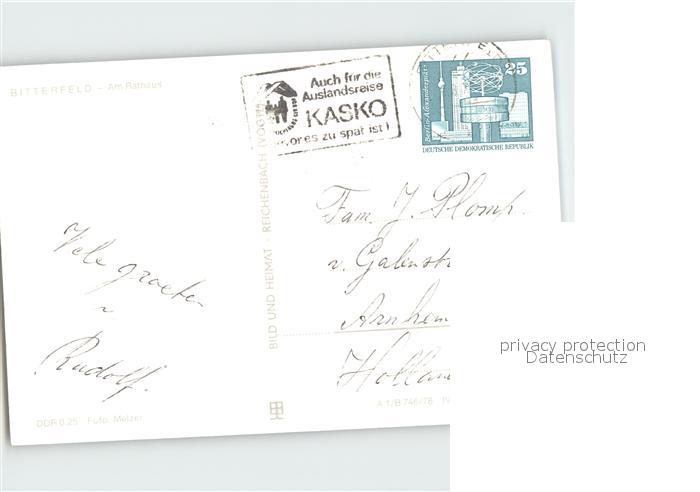 BITTERFELD - Am Rathaus
Auch für die
Auslandsreise
KASKO
ores zu spät ist!
25
Berlin-Alexanderplatz
DEUTSCHE DEMOKRATISCHE REPUBLIK
BILD UND HEIMAT · REICHENBACH (VOGTL
Fam. J. Plomp.
v. Galenstr
Arnhem
Holland
Vele groeten
Rudolf.
DDR 0.25 Foto: Melzer
A 1/B 746/76 19
privacy protection
Datenschutz